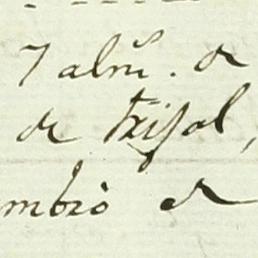 7 alm̃. de
de trijol,
mbiò de